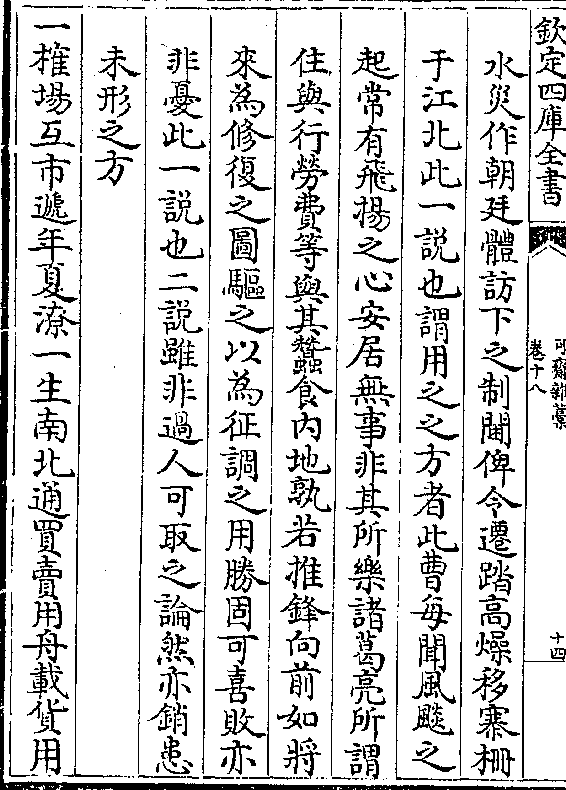 欽定四庫全書
可齋雜藁
卷十八
十四
水災作朝廷體訪下之制閫俾令遷踏高燥移寨柵
于江北此一説也謂用之之方者此曹每聞風飈之
起常有飛揚之心安居無事非其所樂諸葛亮所謂
住與行勞費等與其蠶食内地孰若推鋒向前如將
來為修復之圖驅之以為征調之用勝固可喜敗亦
非憂此一説也二説雖非過人可取之論然亦銷患
未形之方
一搉場互市遞年夏潦一生南北通買賣用舟載貨用